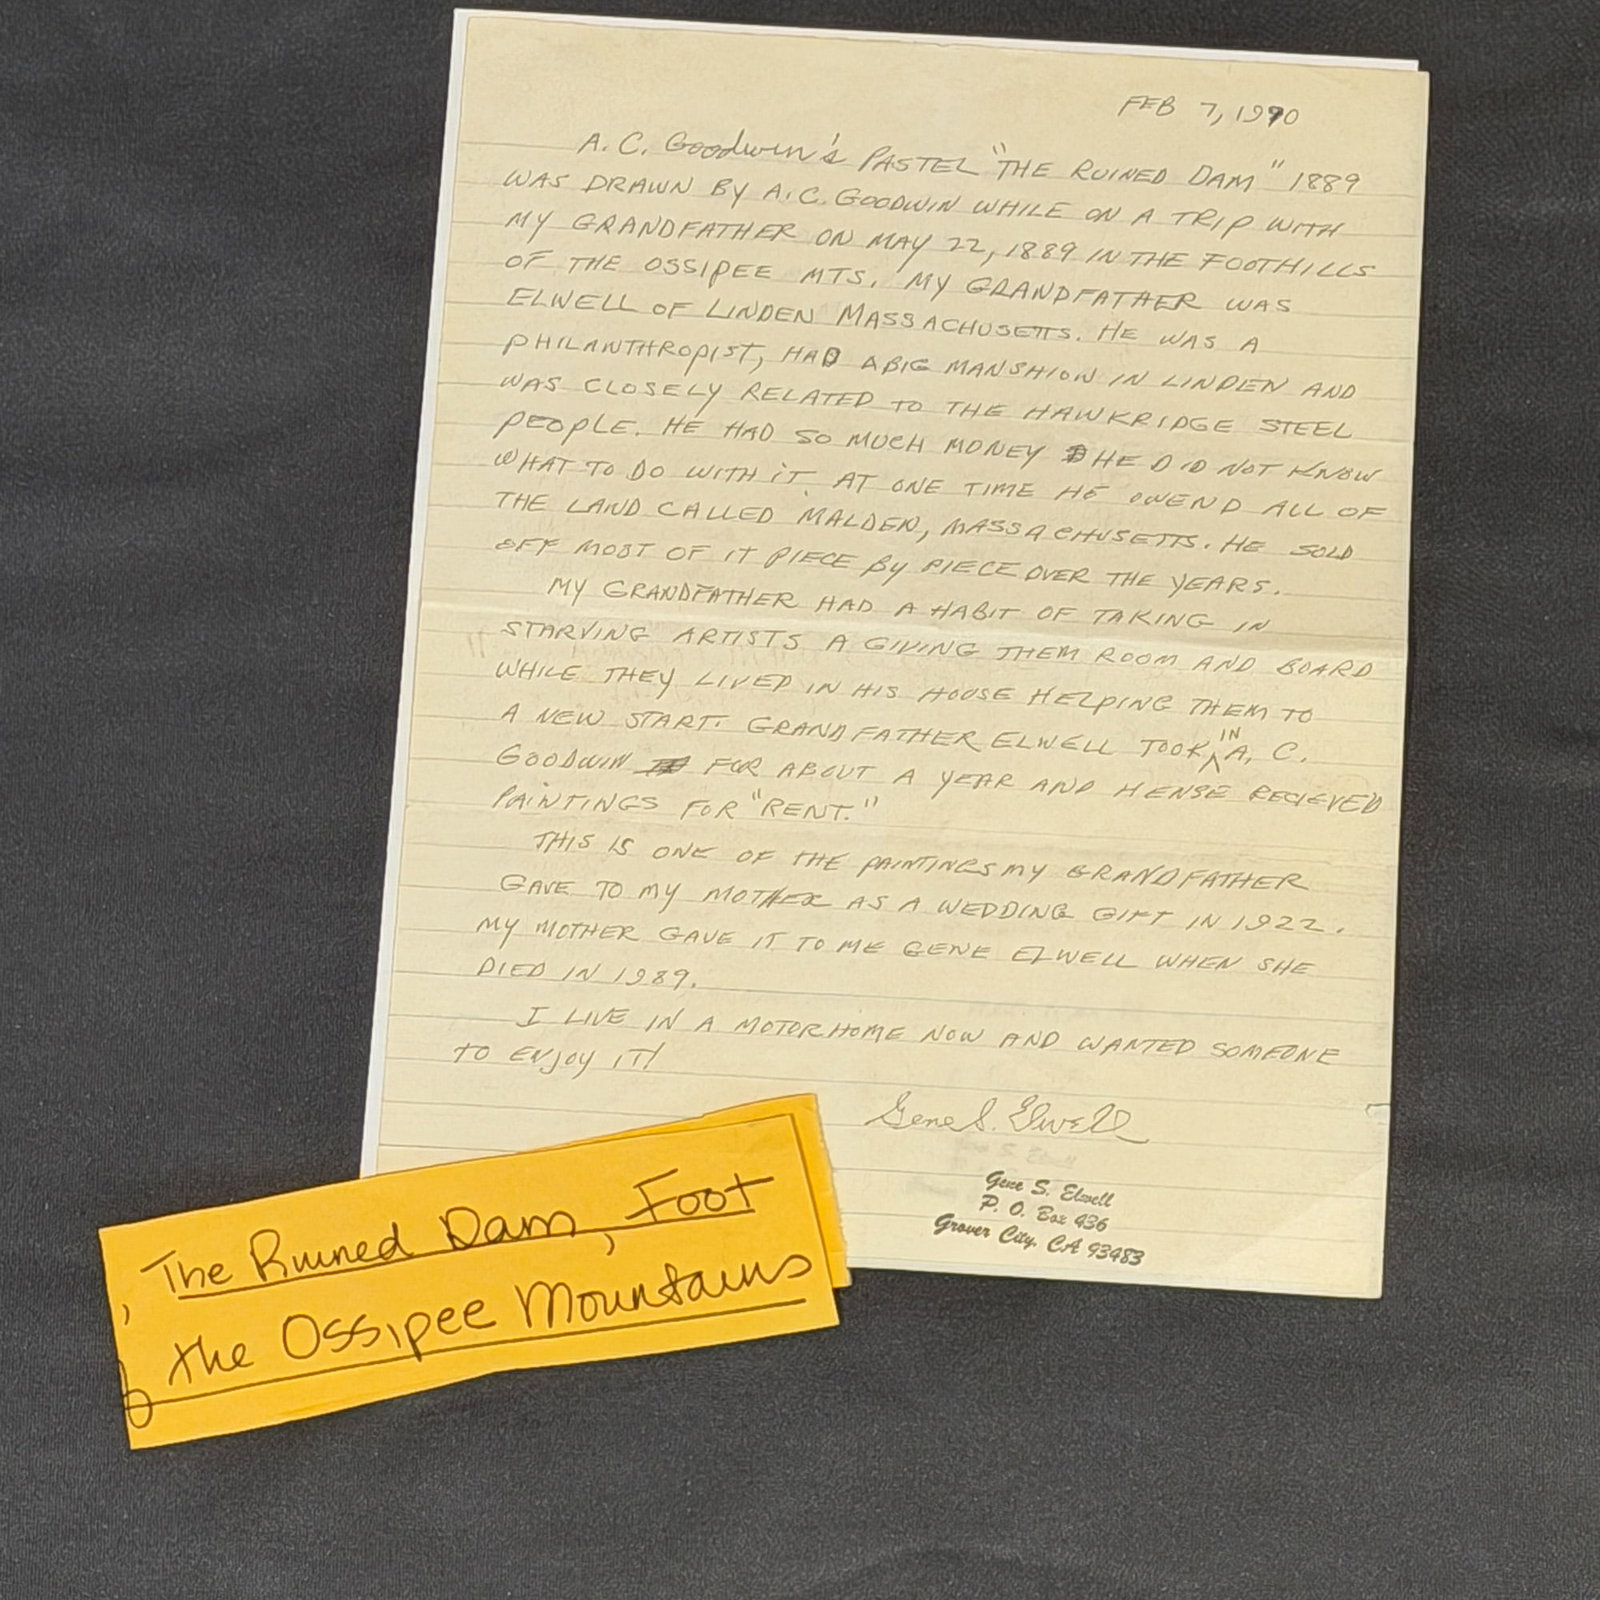 FEB 7, 1990
A. C. Goodwin's PASTEL "THE RUINED DAM" 1889
WAS DRAWN BY A.C. GOODWIN WHILE ON A TRIP WITH
MY GRANDFATHER ON MAY 22, 1889 IN THE FOOTHILLS
OF THE OSSIPEE MTS. MY GRANDFATHER WAS
ELWELL OF LINDEN MASSACHUSETTS. HE WAS A
PHILANTHROPIST, HAD A BIG MANSHION IN LINDEN AND
WAS CLOSELY RELATED TO THE HAWKRIDGE STEEL
PEOPLE. HE HAD SO MUCH MONEY HE DID NOT KNOW
WHAT TO DO WITH IT. AT ONE TIME HE OWEND ALL OF
THE LAND CALLED MALDEN, MASSACHUSETTS. HE SOLD
OFF MOST OF IT PIECE BY PIECE OVER THE YEARS.
MY GRANDFATHER HAD A HABIT OF TAKING IN
STARVING ARTISTS A GIVING THEM ROOM AND BOARD
WHILE THEY LIVED IN HIS HOUSE HELPING THEM TO
A NEW START. GRANDFATHER ELWELL TOOK IN A. C.
GOODWIN FOR ABOUT A YEAR AND HENSE RECIEVED
PAINTINGS FOR "RENT."
THIS IS ONE OF THE PAINTINGS MY GRANDFATHER
GAVE TO MY MOTHER AS A WEDDING GIFT IN 1922.
MY MOTHER GAVE IT TO ME GENE ELWELL WHEN SHE
DIED IN 1989.
I LIVE IN A MOTORHOME NOW AND WANTED SOMEONE
TO ENJOY IT!
Gene S. Elwell
Gene S. Elwell
P. O. Box 436
Grover City, CA 93483
, The Ruined Dam, Foot
the Ossipee Mountains